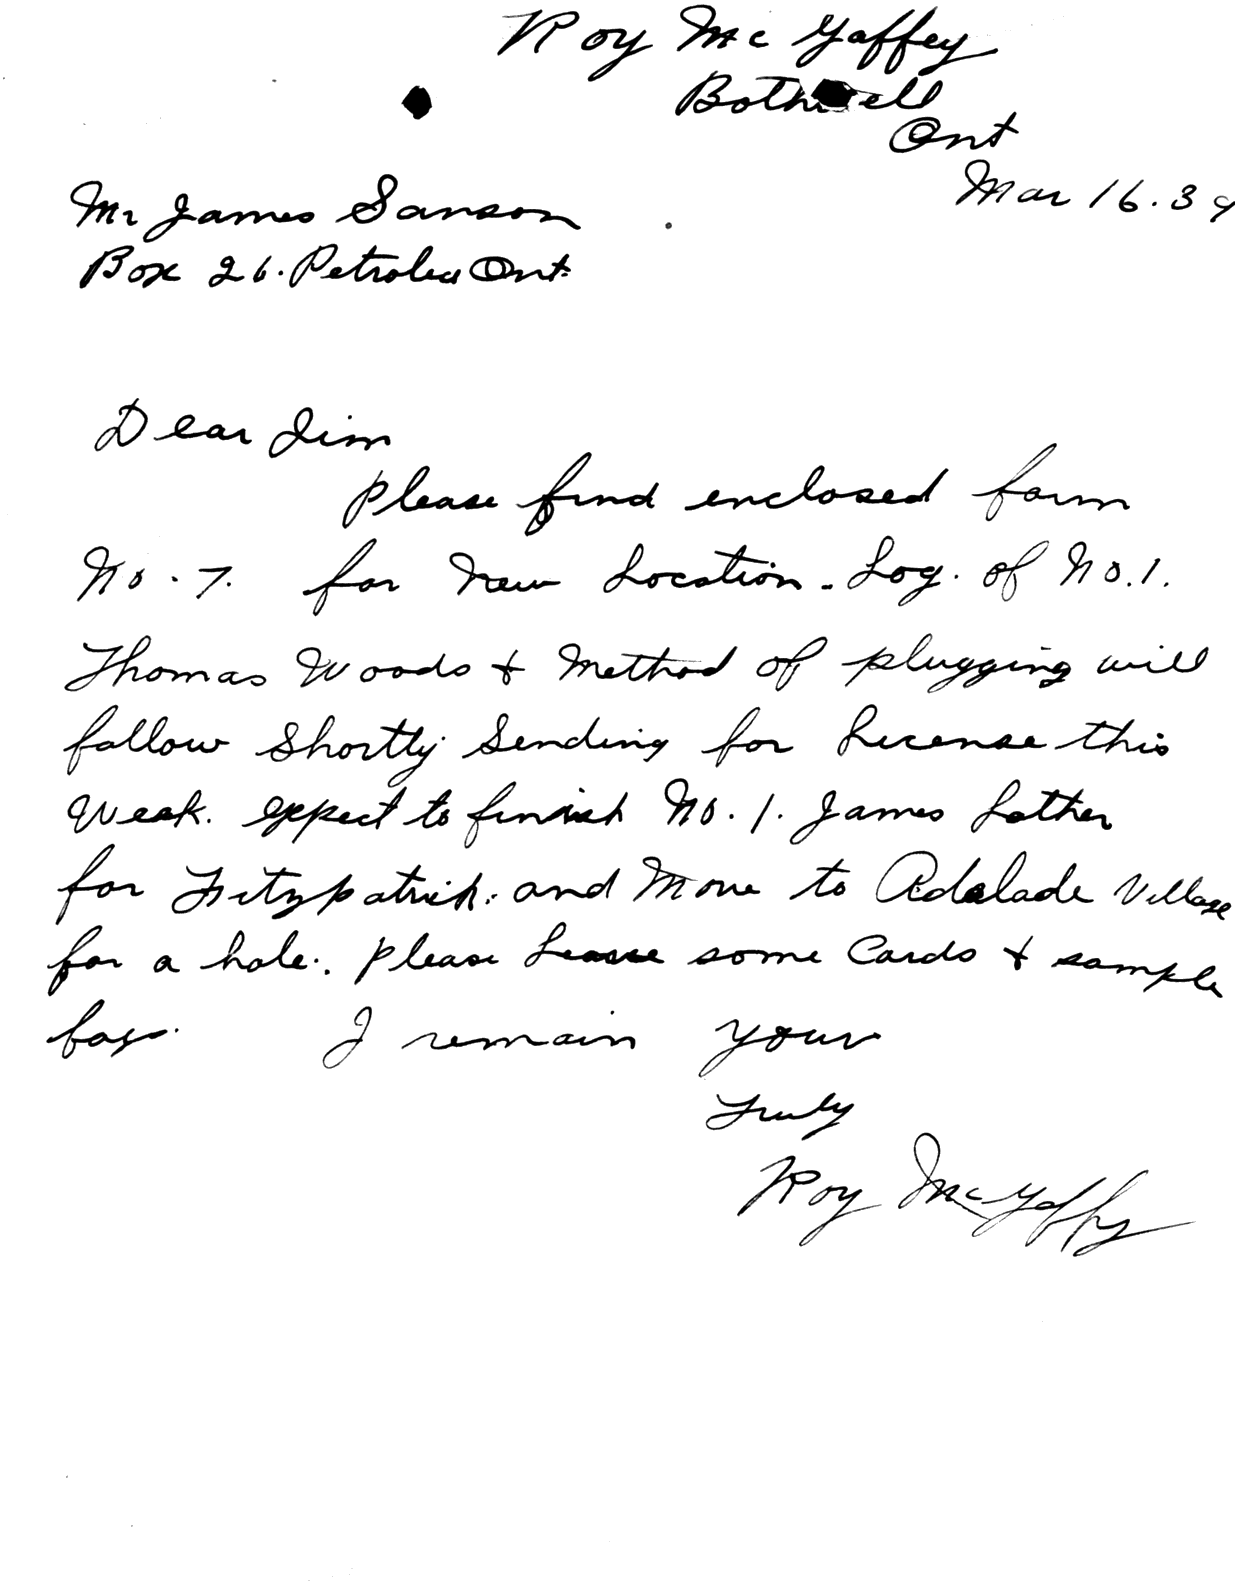 Roy Mc Gaffey
Bothwell
Ont
Mar 16. 39
Mr James Sanson
Box 26. Petrolea Ont.
Dear Jim
Please find enclosed form
No. 7. for New Location. Log. of No. 1.
Thomas Woods & Method of plugging will
follow Shortly Sending for License this
Week. expect to finish No. 1. James Lother
for Fitzpatrick. and Move to Adelade Village
for a hole. Please Leave some Cards & sample
bags. I remain your
truly
Roy McGaffey